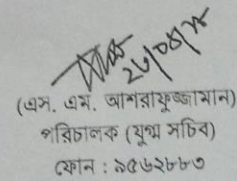 (এস. এম. আশরাফুজ্জামান)
পরিচালক (যুগ্ম সচিব)
ফোন : ৯৫৬২৮৮৩